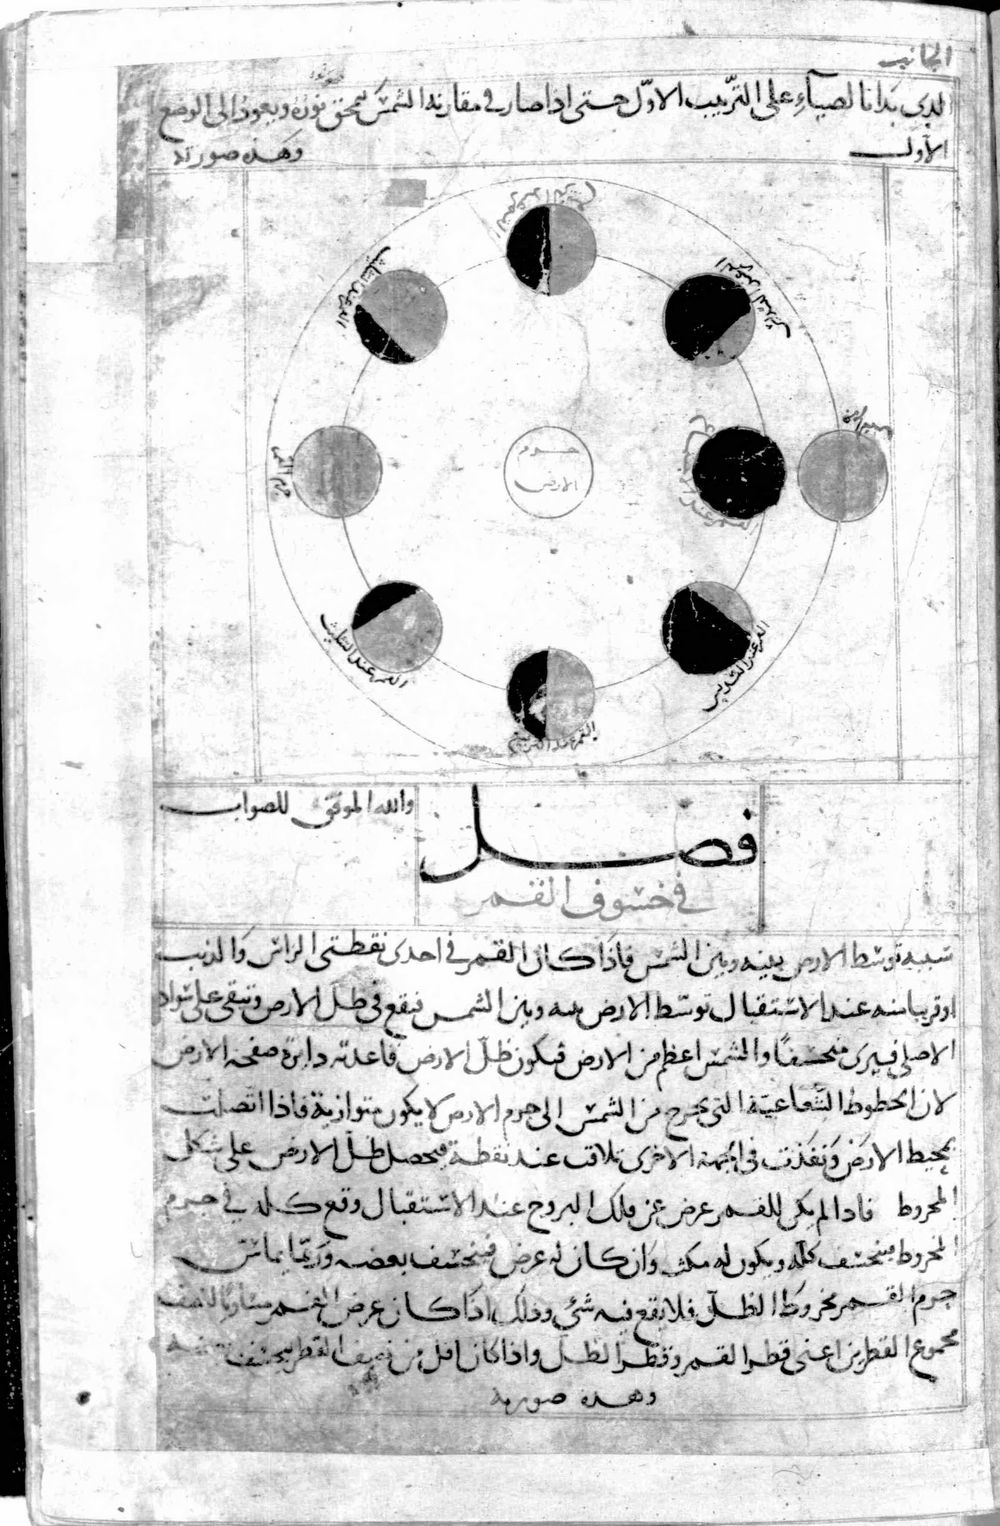 الجانب
الذي بدا بالضياء على الترتيب الاوّل حتى اذا صار في مقارنة الشمس يمحق نوره ويعود الى الوضع
الاول وهذه صورته
القمر عند التربيع
القمر عند التسديس
القمر عند التثليث
جرم الشمس
القمر عند الاجتماع
جرم
الارض
القمر عند التثليث
القمر عند التسديس
القمر عند التربيع
والله الموفق للصواب
فصل
في خسوف القمر
سببه توسط الارض بينه وبين الشمس فاذا كان القمر في احدى نقطتى الراس والذنب
او قريبا منه عند الاستقبال توسط الارض بينه وبين الشمس فيقع في ظل الارض وتبقى على سواد
الاصلي فيرى منخسفا والشمس اعظم من الارض فيكون ظلّ الارض قاعدته دايرة صفحه الارض
لان الخطوط الشعاعيّة التى يخرج من الشمس الى جرم الارض لا يكون متوازية فاذا اتصلت
بمحيط الارض ونفذت في الجهة الاخرى تلاقت عند نقطة فيحصل ظلّ الارض على شكل
المخروط فاذا لم يكن للقمر عرض عن فلك البروج عند الاستقبال وقع كله في جرم
المخروط فينخسف كلّه ويكون له مكث وان كان له عرض فينخسف بعضه وربّما يماسّ
جرم القمر مخروط الظلّ فلا يقع فيه شئ وذلك اذا كان عرض القمر مساويا لنصف
مجموع القطرين اعنى قطر القمر وقطر الظلّ واذا كان اقل من نصف القطر ينخسف بعضه
وهذه صورته